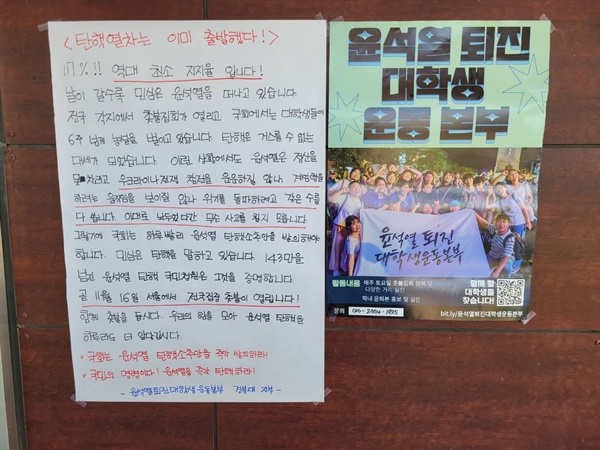 < 탄핵열차는 이미 출발했다! >
17%!! 역대 최소 지지율 입니다!
날이 갈수록 민심은 윤석열을 떠나고 있습니다.
전국 각지에서 촛불집회가 열리고 국회에서는 대학생들이
6주 넘게 농성을 벌이고 있습니다. 탄핵은 거스를 수 없는
대세가 되었습니다. 이런 상황에서도 윤석열은 정신을
못 차리고 우크라이나 전쟁 참전을 운운하질 않나 계엄령을
하려는 움직임을 보이질 않나 위기를 돌파하려고 갖은 수를
다 씁니다. 이대로 놔두었다간 무슨 사고를 칠지 모릅니다.
그렇기에 국회는 하루빨리 윤석열 탄핵소추안을 발의해야
합니다. 민심은 탄핵을 말하고 있습니다. 143만을
넘긴 윤석열 탄핵 국민청원은 그것을 증명합니다.
곧 11월 16일 서울에서 전국집중 촛불이 열립니다!
함께 촛불을 듭시다. 우리의 힘을 모아 윤석열 탄핵을
하루라도 더 앞당깁시다.
국회는 윤석열 탄핵소추안을 즉각 발의하라!
국민의 명령이다! 윤석열을 즉각 탄핵하라!
- 윤석열퇴진대학생운동본부 경북대 지부 -
윤석열 퇴진
대학생
운동 본부
윤석열 퇴진
대학생운동본부
활동내용 매주 토요일 촛불집회 참여 및
다양한 거리 실천
학내 윤퇴본 홍보 및 실천
문의 010-2004-1825
함께 할
대학생을
찾습니다!
bit.ly/윤석열퇴진대학생운동본부